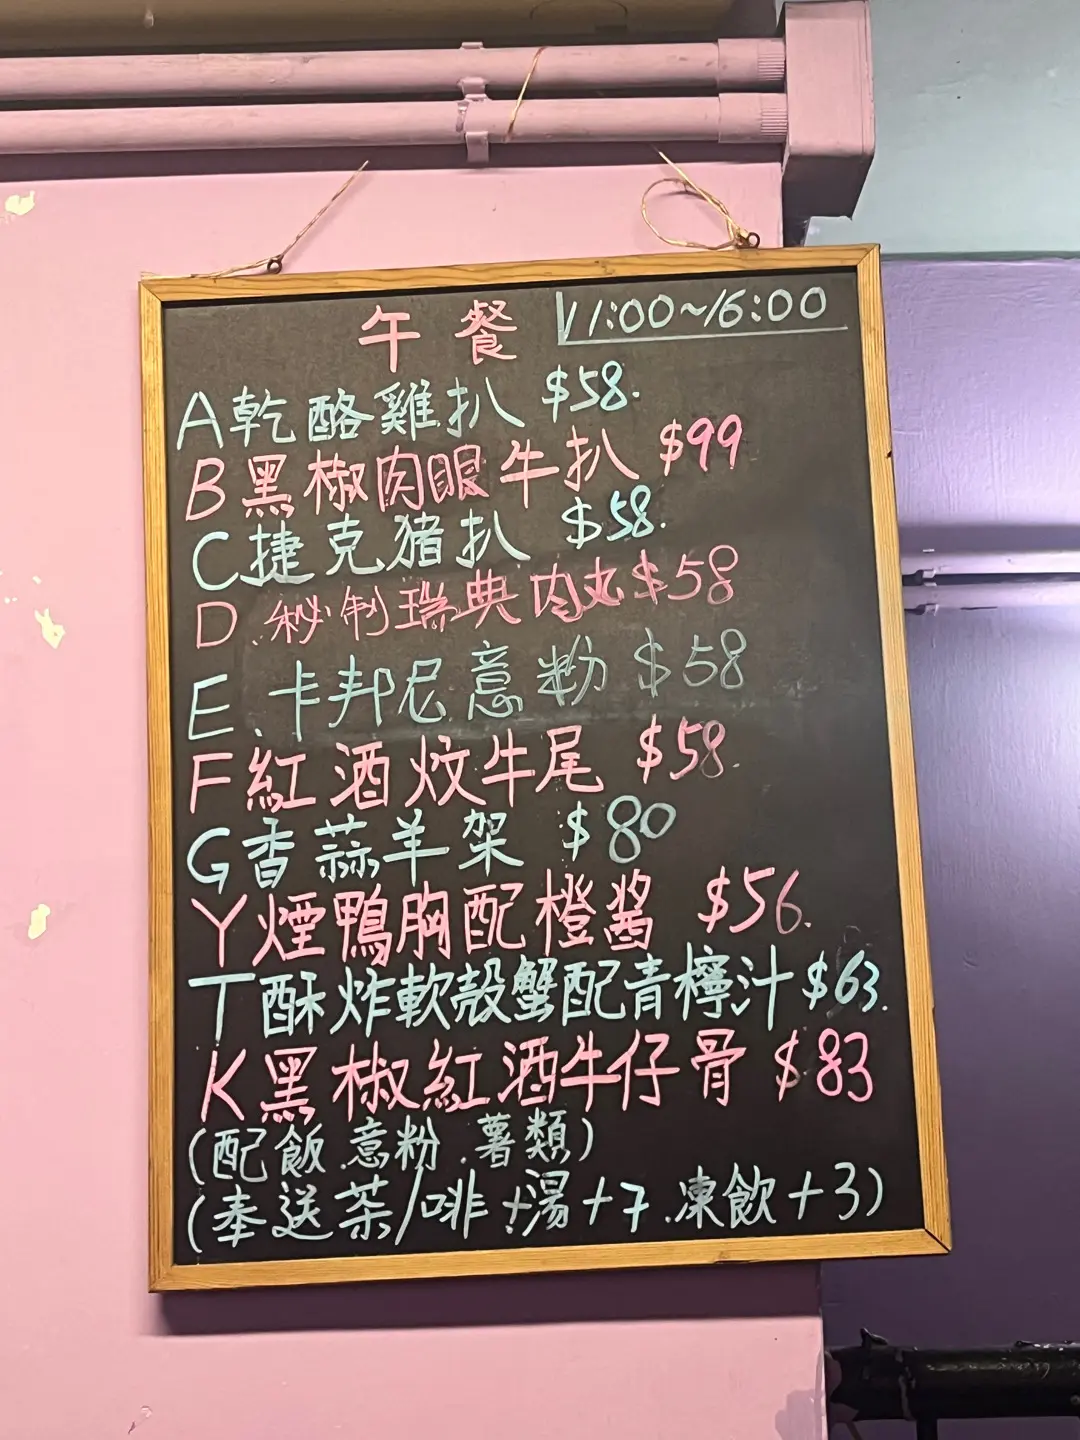 午餐 11:00~16:00
A乾酪雞扒 $58.
B黑椒肉眼牛扒 $99
C捷克豬扒 $58.
D.秘制瑞典肉丸$58
E.卡邦尼意粉 $58
F紅酒炆牛尾 $58.
G香蒜羊架 $80
Y煙鴨胸配橙酱 $56.
T酥炸軟殼蟹配青檸汁$63.
K黑椒紅酒牛仔骨 $83
(配飯.意粉.薯類)
(奉送茶/啡.+湯+7.凍飲+3)